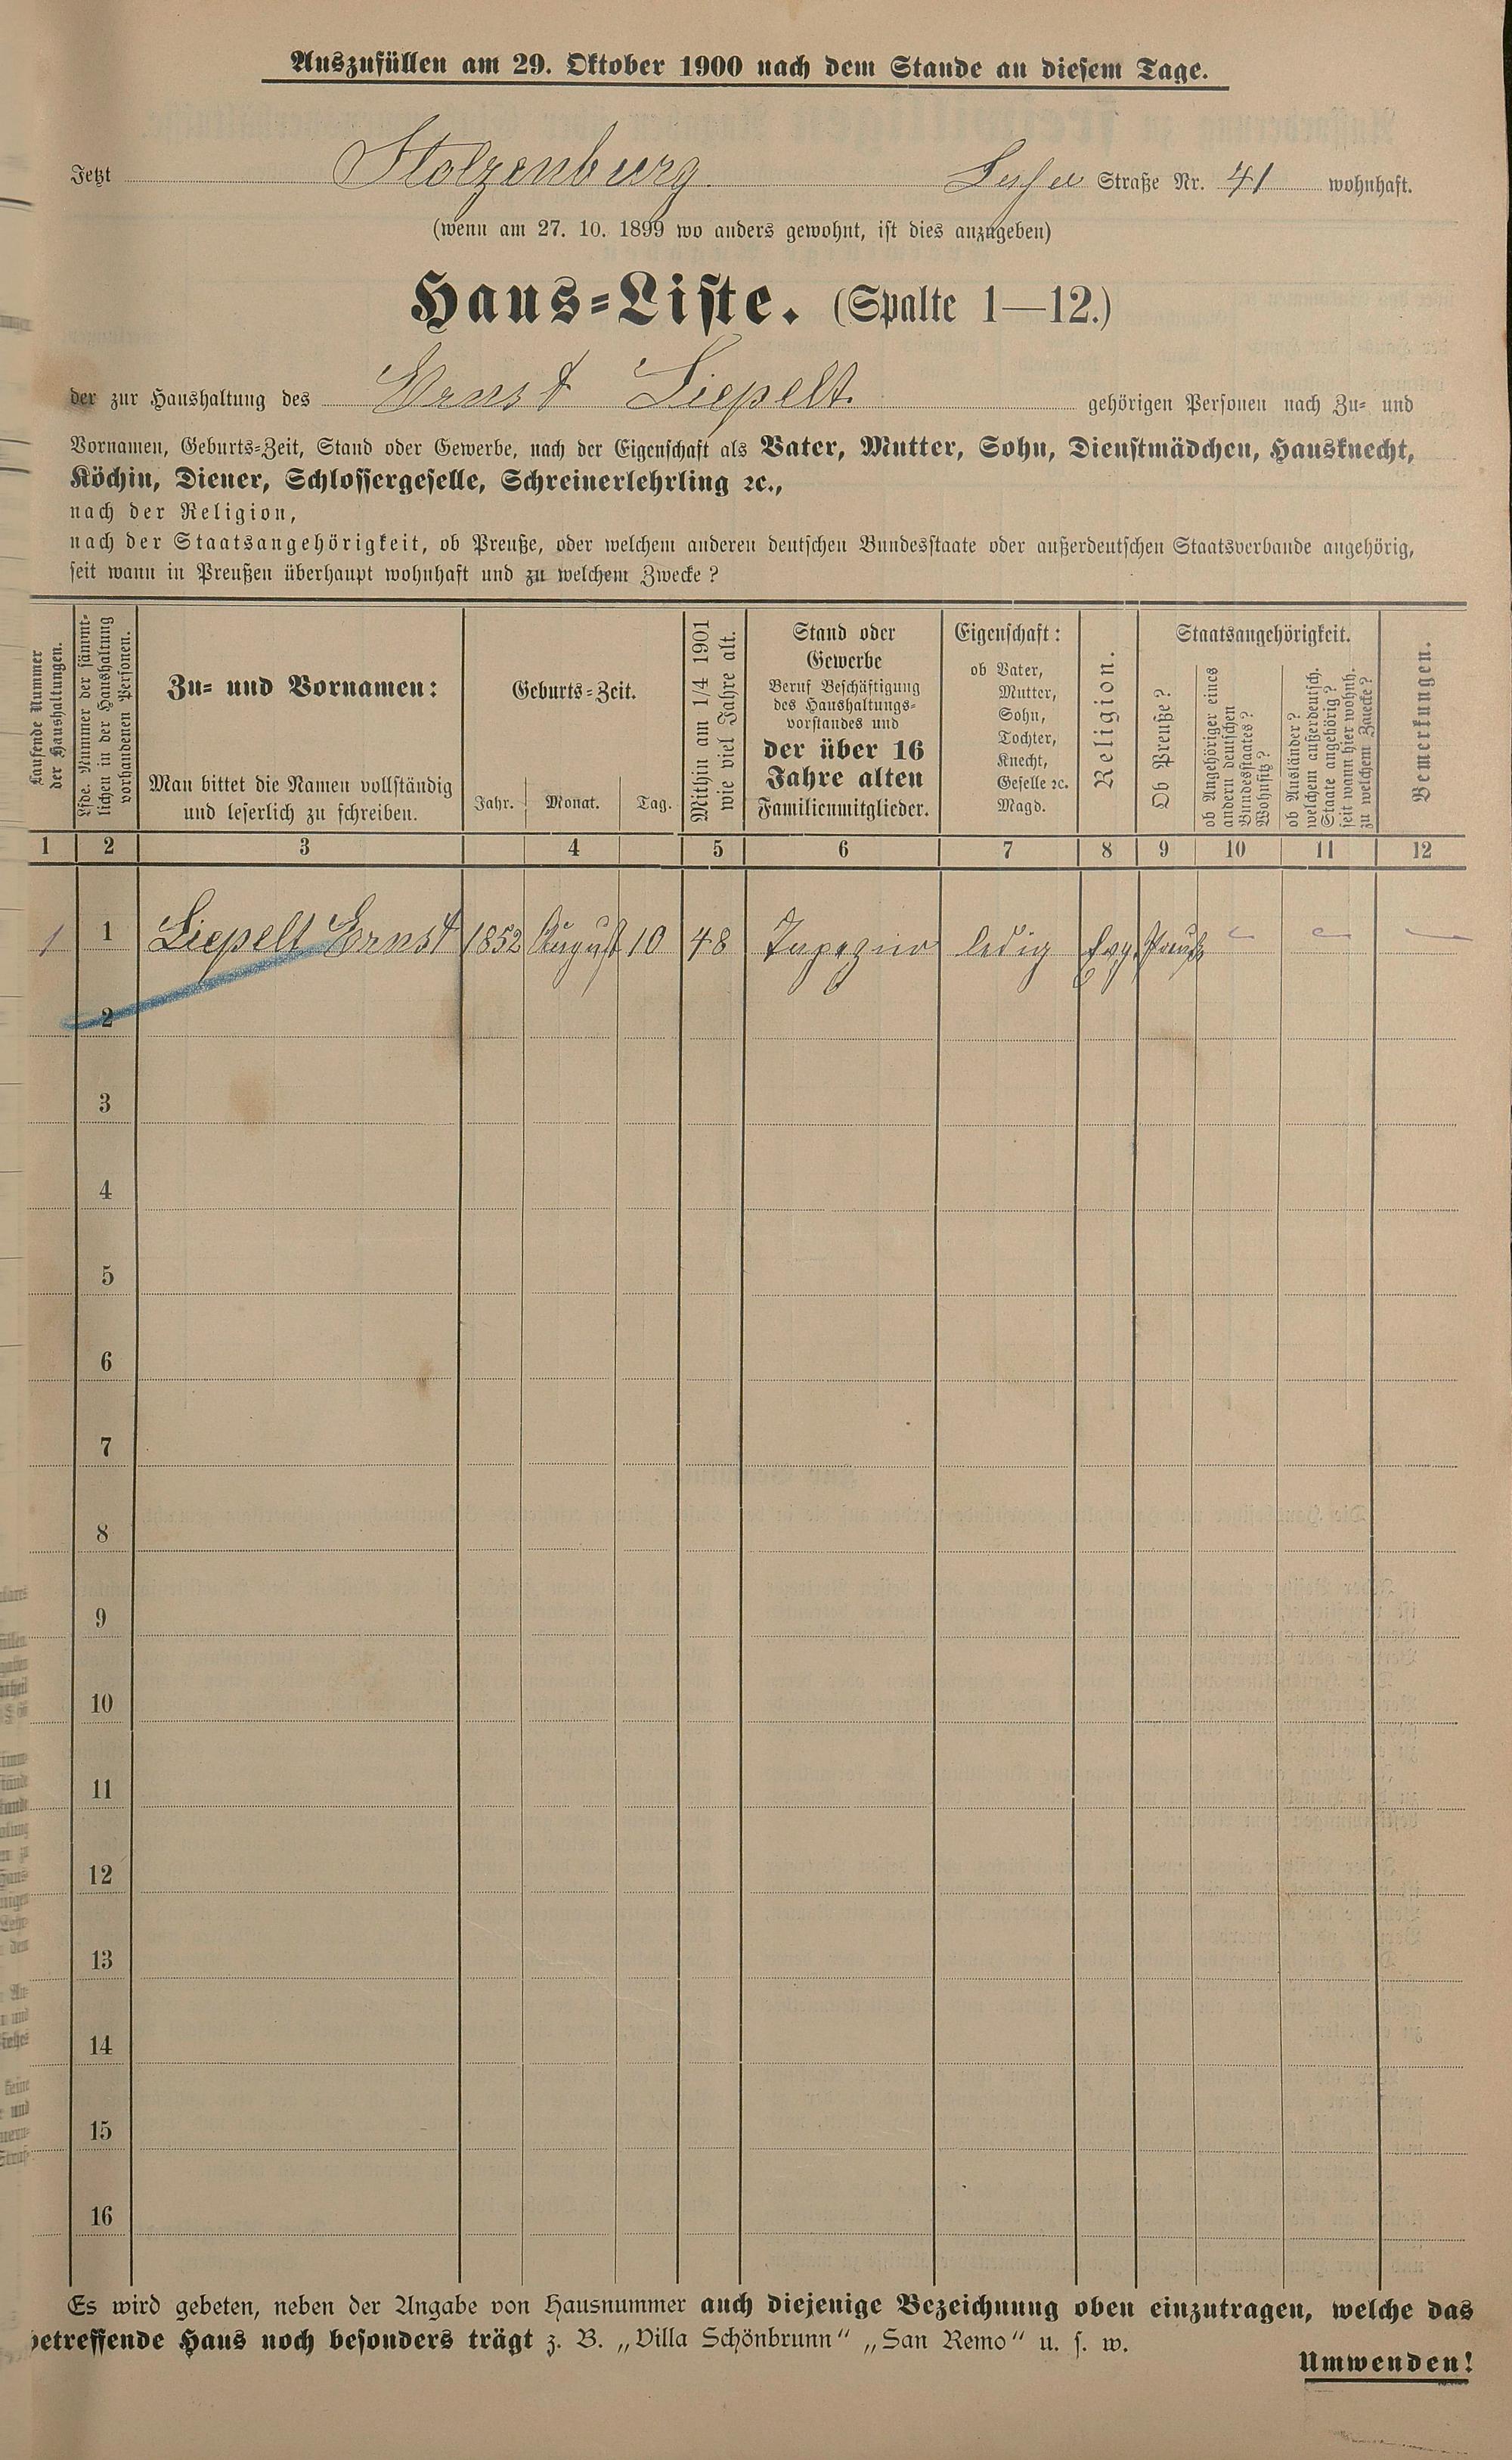 Auszufüllen am 29. Oktober 1900 nach dem Stande an diesem Tage.
Jetzt Stolzenburg. Straße Nr. 41 wohnhaft.
(wenn am 27. 10. 1899 wo anders gewohnt, ist dies anzugeben)
Haus-Liste. (Spalte 1—12.)
der zur Haushaltung des Ernst Liepelt. gehörigen Personen nach Zu- und
Vornamen, Geburts-Zeit, Stand oder Gewerbe, nach der Eigenschaft als Vater, Mutter, Sohn, Dienstmädchen, Hausknecht,
Köchin, Diener, Schlossergeselle, Schreinerlehrling ꝛc.,
nach der Religion,
nach der Staatsangehörigkeit, ob Preuße, oder welchem anderen deutschen Bundesstaate oder außerdeutschen Staatsverbande angehörig,
seit wann in Preußen überhaupt wohnhaft und zu welchem Zwecke?
Laufende Nummer
der Haushaltungen.
Lfde. Nummer der sämmt-
lichen in der Haushaltung
vorhandenen Personen.
Zu- und Vornamen:
Man bittet die Namen vollständig
und leserlich zu schreiben.
Geburts-Zeit.
Jahr. Monat. Tag.
Mithin am 1/4 1901
wie viel Jahre alt.
Stand oder
Gewerbe
Beruf Beschäftigung
des Haushaltungs-
vorstandes und
der über 16
Jahre alten
Familienmitglieder.
Eigenschaft:
ob Vater,
Mutter,
Sohn,
Tochter,
Knecht,
Geselle ꝛc.
Magd.
Religion.
Staatsangehörigkeit.
Ob Preuße?
ob Angehöriger eines
andern deutschen
Bundesstaates?
Wohnsitz?
ob Ausländer?
welchem außerdeutsch.
Staate angehörig?
seit wann hier wohnh.
zu welchem Zwecke?
Bemerkungen.
1 2 3 4 5 6 7 8 9 10 11 12
1 1 Liepelt Ernst 1852 August 10 48 Tapezirer ledig Evg. Preuße – – –
2
3
4
5
6
7
8
9
10
11
12
13
14
15
16
Es wird gebeten, neben der Angabe von Hausnummer auch diejenige Bezeichnung oben einzutragen, welche das
betreffende Haus noch besonders trägt z. B. „Villa Schönbrunn“ „San Remo“ u. s. w.
Umwenden!